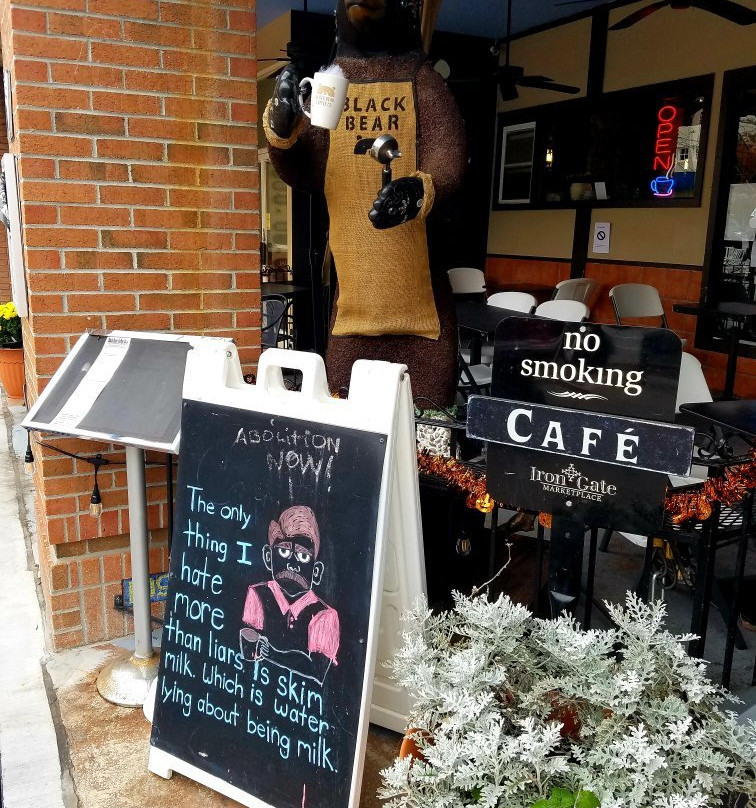 BLACK
BEAR
OPEN
no
smoking
CAFÉ
Iron Gate
MARKETPLACE
ABOLITION
NOW!
The only
thing I
hate
more
than liars is skim
milk. Which is water
lying about being milk.